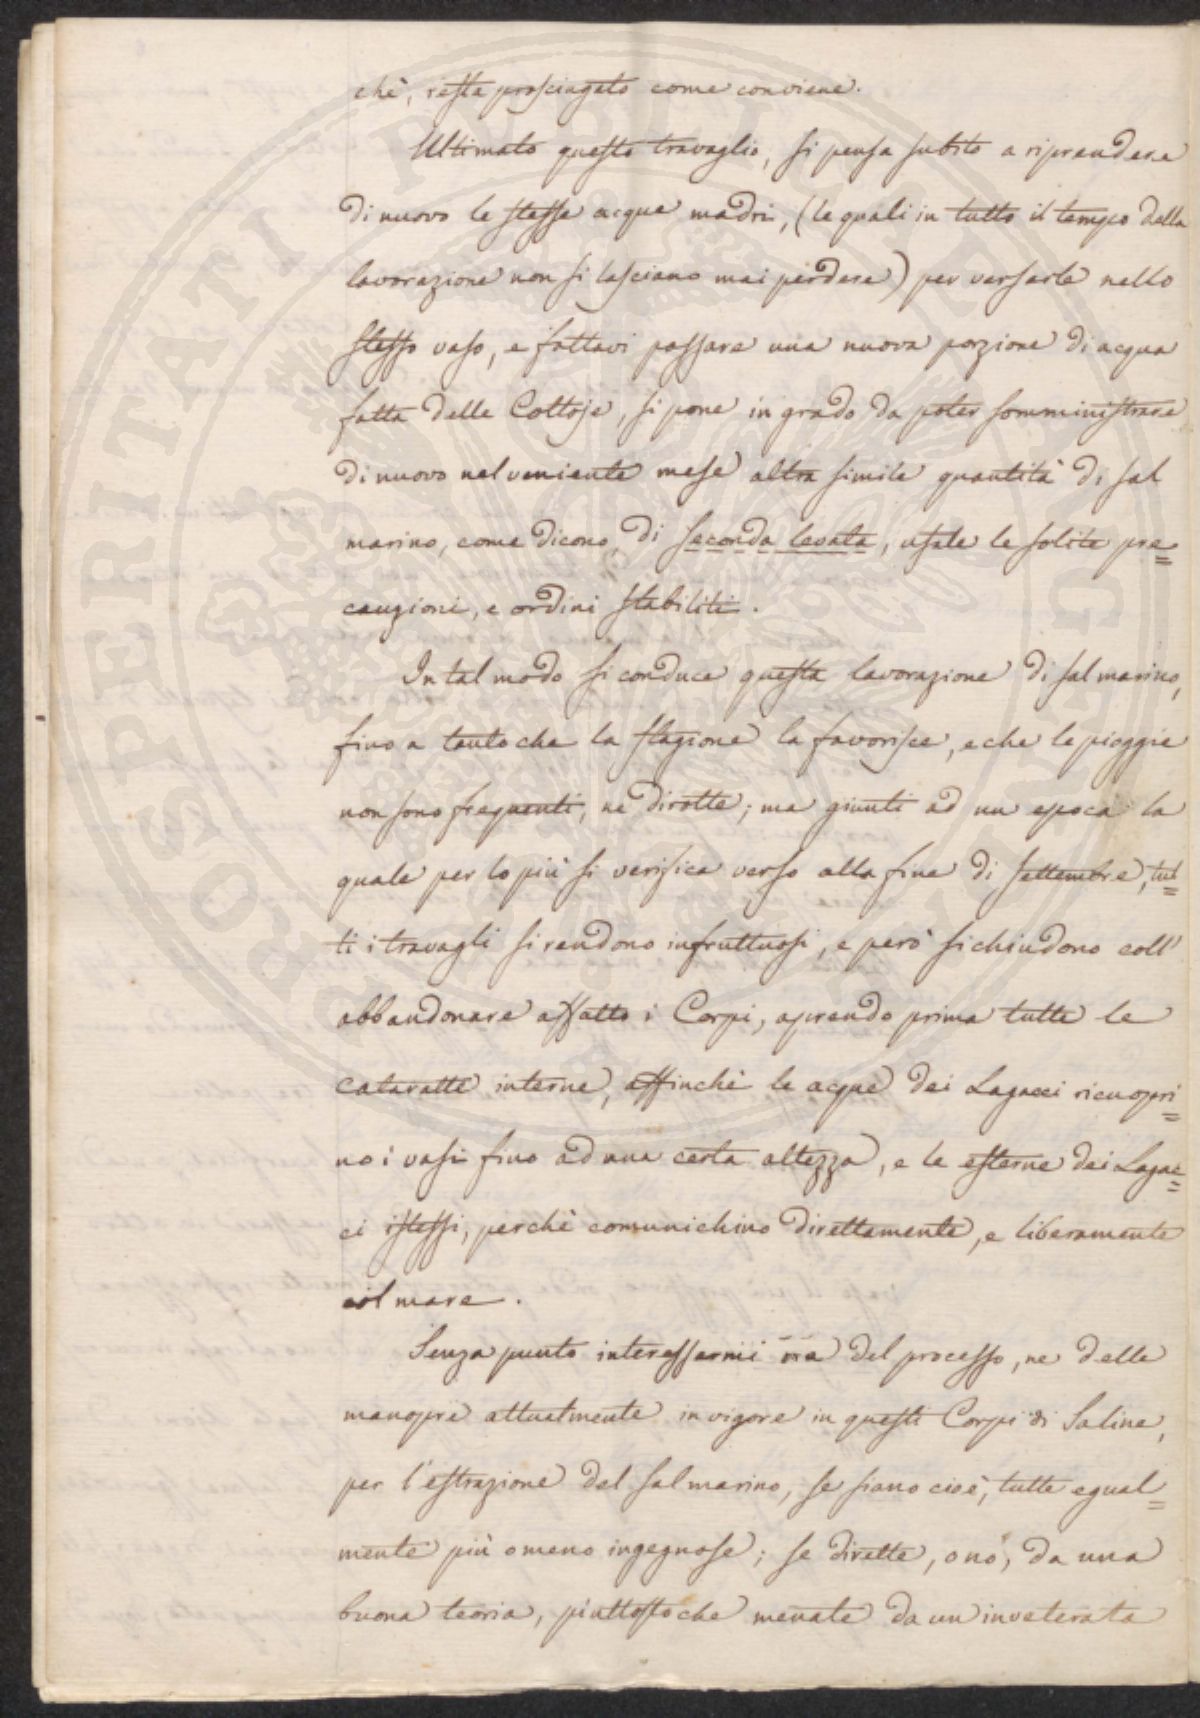 chè, resta prosciugato come conviene.
Ultimato questo travaglio, si pensa subito a riprendere
di nuovo le stesse acque madri, (le quali in tutto il tempo della
lavorazione non si lasciano mai perdere) per versarle nello
stesso vaso, e fattavi passare una nuova porzione di acqua
fatta delle Cottoje, si pone in grado da poter somministrare
di nuovo nel veniente mese altra simile quantità di sal
marino, come dicono, di seconda levata, usate le solite pre=
cauzioni, e ordini stabiliti.
In tal modo si conduce questa lavorazione di sal marino,
fino a tanto che la stagione la favorisce, e che le pioggie
non sono frequenti, ne dirotte; ma giunti ad un epoca la
quale per lo più si verifica verso alla fine di settembre, tut=
ti i travagli si rendono infruttuosi, e però si chiudono coll'
abbandonare affatto i Corpi, aprendo prima tutte le
cataratte interne, affinchè le acque dei Lagacci ricuopri=
no i vasi fino ad una certa altezza, e le esterne dei Lagac=
ci istessi, perchè comunichino direttamente, e liberamente
col mare.
Senza punto interessarmi ora del processo, ne delle
manopre attualmente in vigore in questi Corpi di Saline,
per l'estrazione del sal marino, se siano cioè, tutte egual=
mente più o meno ingegnose; se dirette, o nò, da una
buona teoria, piuttosto che menate da un inveterata
PROSPERITATI PUBLICAE AUGENDAE